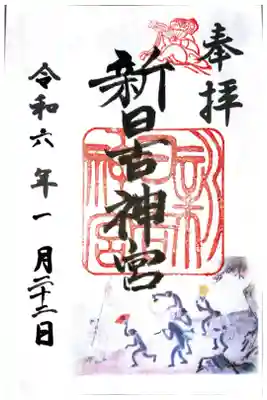 奉拝
新日吉神宮
令和六年一月二十二日